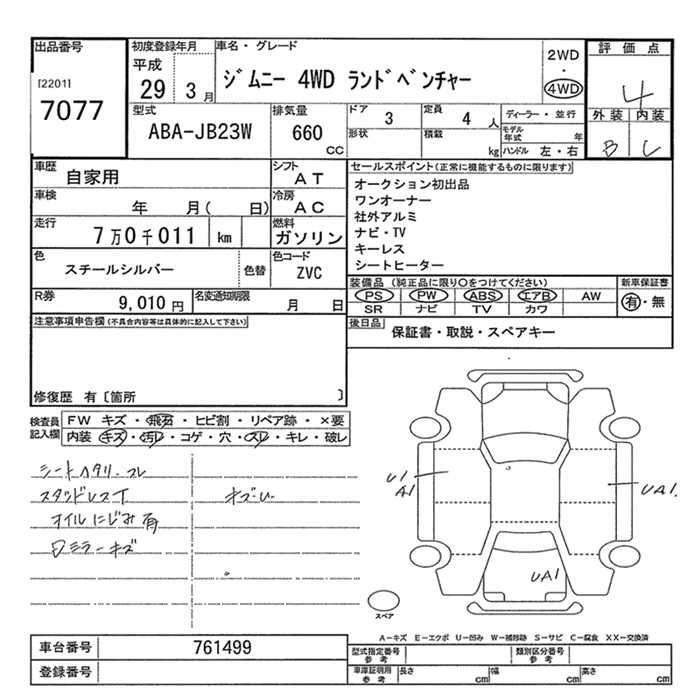 出品番号
[2201]
7077
初度登録年月
平成
29 3 月
車名・グレード
ジムニー 4WD ランドベンチャー
2WD
・
4WD
評価点
4
外装 内装
B C
型式
ABA-JB23W
排気量
660
CC
ドア
3
定員
4 人
形状
積載
kg
ディーラー・並行
モデル年式 年
ハンドル 左・右
車歴
自家用
シフト
AT
車検
年 月( 日)
冷房
AC
走行
7万0千011 km
燃料
ガソリン
色
スチールシルバー
色替
色コード
ZVC
R券
9,010 円
名変通知期限
月 日
セールスポイント(正常に機能するものに限ります)
オークション初出品
ワンオーナー
社外アルミ
ナビ・TV
キーレス
シートヒーター
装備品 (純正品に限り○をつけてください)
PS PW ABS エアB AW
SR ナビ TV カワ
新車保証書
有・無
後日品
保証書・取説・スペアキー
注意事項申告欄(不具合内容等は具体的に記入して下さい)
修復歴 有〔箇所 〕
検査員記入欄
FW キズ・飛石・ヒビ割・リペア跡・×要
内装 キズ・汚レ・コゲ・穴・スレ・キレ・破レ
シートヘタリ・スレ
スタッドレスT
キズ・U
オイルにじみ有
ミラーキズ
U1
A1
UA1
UA1
スペア
A−キズ E−エクボ U−凹み W−補修跡 S−サビ C−腐食 XX−交換済
車台番号
761499
登録番号
型式指定番号
参考
類別区分番号
参考
車庫証明用
参考
長さ cm
幅 cm
高さ cm